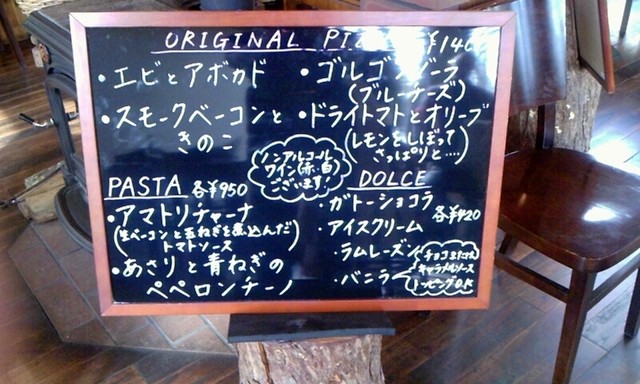 ORIGINAL
・エビとアボカド
・スモークベーコンと
きのこ
・ゴルゴンゾーラ
(ブルーチーズ)
・ドライトマトとオリーブ
(レモンをしぼって
さっぱりと‥‥)
ノンアルコール
ワイン(赤・白)
ございます!
PASTA 各¥950
・アマトリチャーナ
(生ベーコンと玉ねぎを煮込んだ
トマトソース)
・あさりと青ねぎの
ペペロンチーノ
DOLCE
各¥420
・ガトーショコラ
・アイスクリーム
・ラムレーズン
・バニラ
チョコまたは
キャラメルソース
トッピングOK